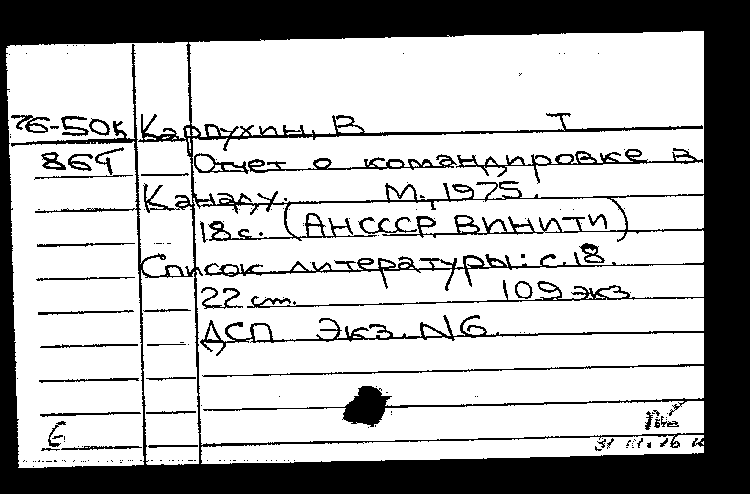 76-50к Карпухин, В Т
869 Отчет о командировке в
Канаду. М., 1975.
18 с. (АН СССР. ВИНИТИ).
Список литературы: с. 18.
22 см. 109 экз.
ДСП Экз. N6.
6